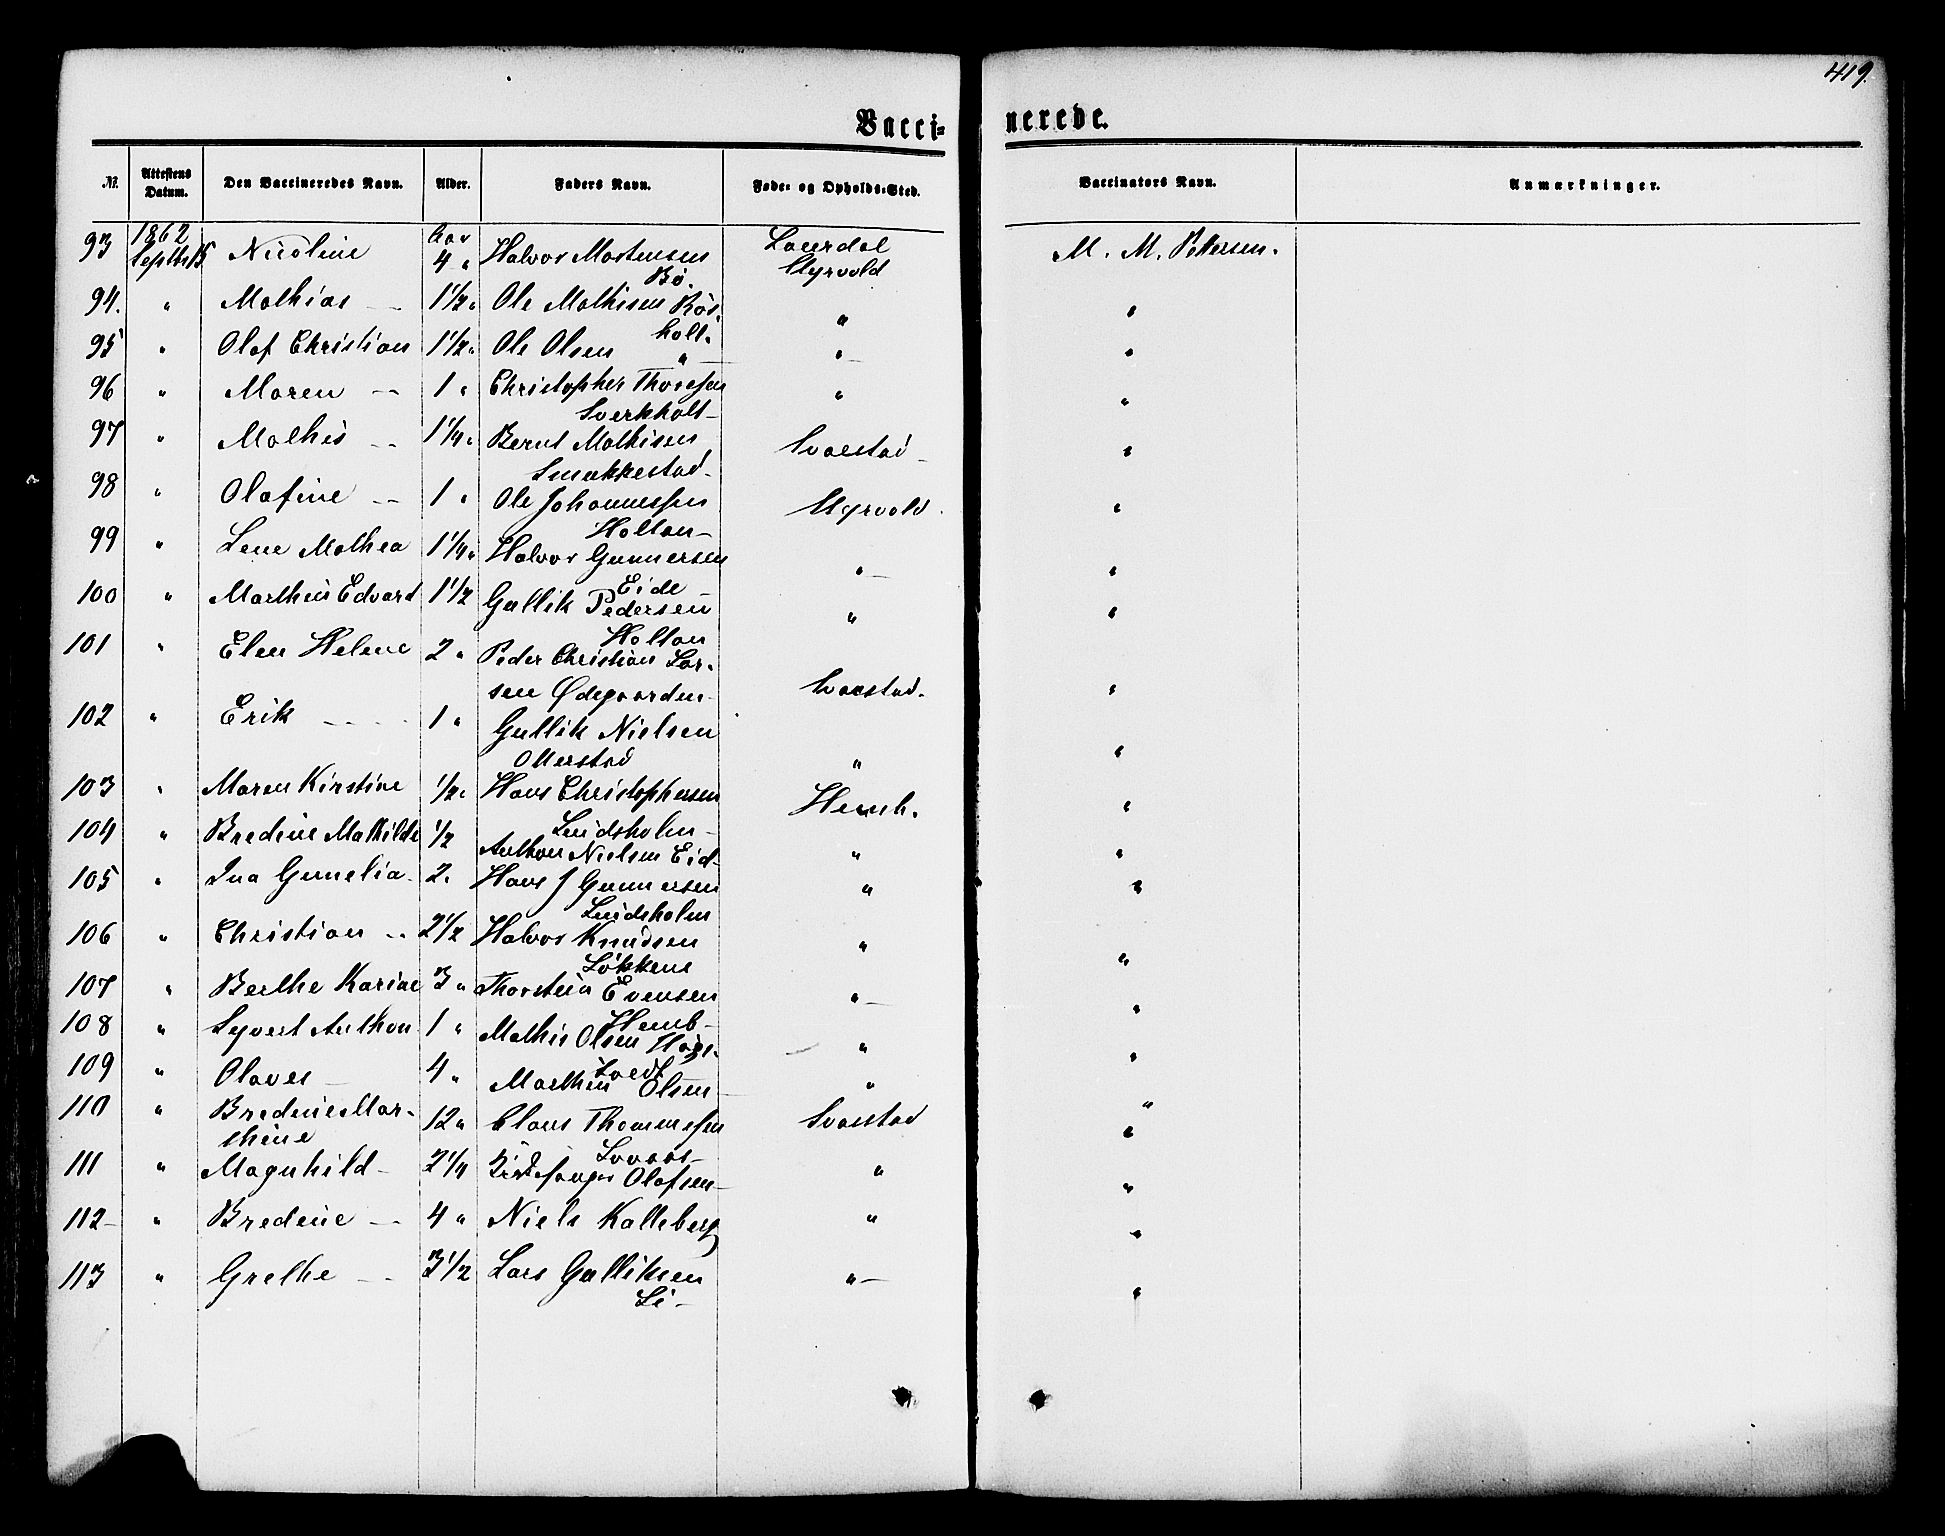 419.
Vacci=
nerede.
№. Attestens Datum. Den Vaccineredes Navn. Alder. Faders Navn. Føde- og Opholds-Sted. Vaccinators Navn. Anmærkninger.
1862 Aar Laurdal
93 Septbr 15 Nicoline 4 " Halvor Mortensen Myrvold M. M. Pettersen.
Bø.
94. " Mathias — 1 1/2 " Ole Mathisen Rös- " "
holt.
95 " Olaf Christian 1 1/2 " Ole Olsen " — " — "
96 " Maren — 1 " Christopher Thoresen " "
Sverkholt —
97 " Mathis — 1 1/4 " Bernt Mathisen Svaestad — "
Smukkestad —
98 " Olafine — 1 " Ole Johannessen Myrvold. "
Holtan —
99 " Lene Mathea 1 1/4 " Halvor Gunnersen " — "
Eide —
100 " Marthin Edvard 1 1/2 Gullik Pedersen " "
Holtan
101 " Elen Helene 2 " Peder Christian Lar-
sen Ødegaarden — Svaestad. "
102 " Erik — 1 " Gullik Nielsen
Ollerstad " "
103 " Maren Kirstine 1/2 " Hans Christophersen Hemb. "
Lindsholm —
104 " Bredine Mathilde 1/2 Anthon Nielsen Eid — " "
105 " Ina Gunelia 2 " Hans J Gunnersen " "
Lindsholm
106 " Christian — 2 1/2 Halvor Knudsen " "
Lökkene
107 " Berthe Karine 3 " Thorstein Evensen " — "
Hemb —
108 " Syvert Anthon 1 " Mathis Olsen " "
109 " Olaves — 4 " Marthin Olsen — " "
110 " Bredine Mar-
thine 12 " Claus Thommessen Svaestad "
111 " Magnhild — 2 1/4 Olafsen — " "
112 — " Bredine — 4 " Niels Kalleberg " "
113 " Grethe — 3 1/2 Lars Gulliksen " — "
Li —